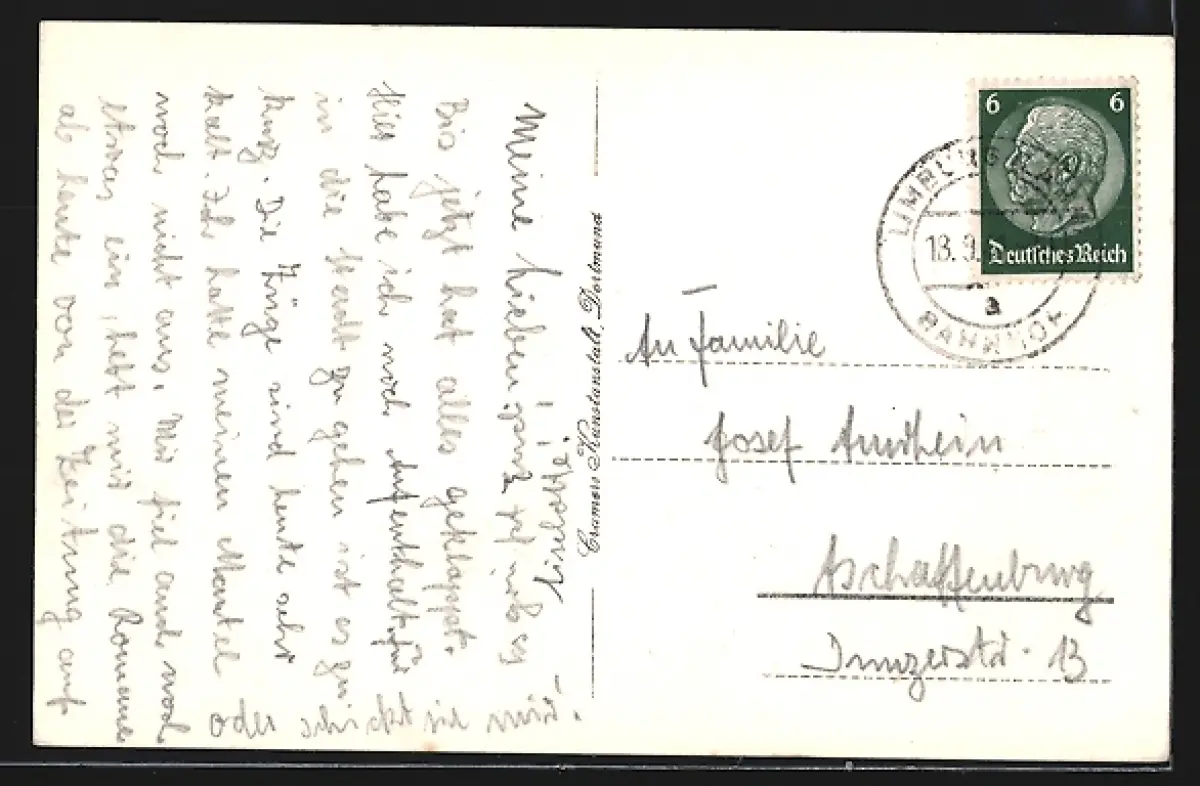 Meine Lieben!
Bis jetzt hat alles geklappt.
Hier habe ich noch Aufenthalt. Für
in die Stadt zu gehen ist es zu
kurz. Die Züge sind heute sehr
kalt. Ich hatte meinen Mantel
noch nicht aus. Mir fiel auch noch
etwas ein, hebt mir die Romane
ab heute von der Zeitung auf
oder schickt sie mir.
Liselotte
Cramers Kunstanstalt, Dortmund
6 6
Deutsches Reich
LIMBURG
18.9.
a
BAHNHOF
An Familie
Josef Amrhein
Aschaffenburg
13